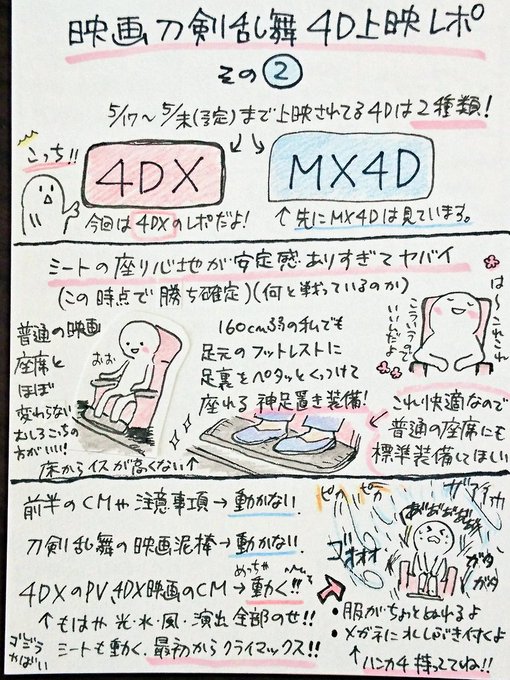 映画刀剣乱舞 4D上映レポ
その②
5/17〜5/末(予定)まで上映されてる4Dは2種類!
こっち!!
4DX
MX4D
今回は4DXのレポだよ!
↑先にMX4Dは見ていまする。
シートの座り心地が安定感ありすぎてヤバイ
(この時点で勝ち確定)(何と戦っているのか)
は〜これこれ
こういうので
いいんだよ
普通の映画
座席と
ほぼ
変わらない
むしろこっちの
方がいい!
おお
床からイスが高くない↑
160cm弱の私でも
足元のフットレストに
足裏をペタッとくっつけて
座れる神足置き装備!
これ快適なので
普通の座席にも
標準装備してほしい
前半のCMや注意事項→動かない
刀剣乱舞の映画泥棒→動かない
4DXのPV、4DX映画のCM→めっちゃ動く!!
↑もはや光・水・風・演出全部のせ!!
ゴジラ
やばい
シートも動く、最初からクライマックス!!
ピカ ピカ
あばばばば
ゴオオオ
ガタ
ガタ
・服がちょっとぬれるよ
・メガネに水しぶき付くよ
↑ハンカチ持っててね!!